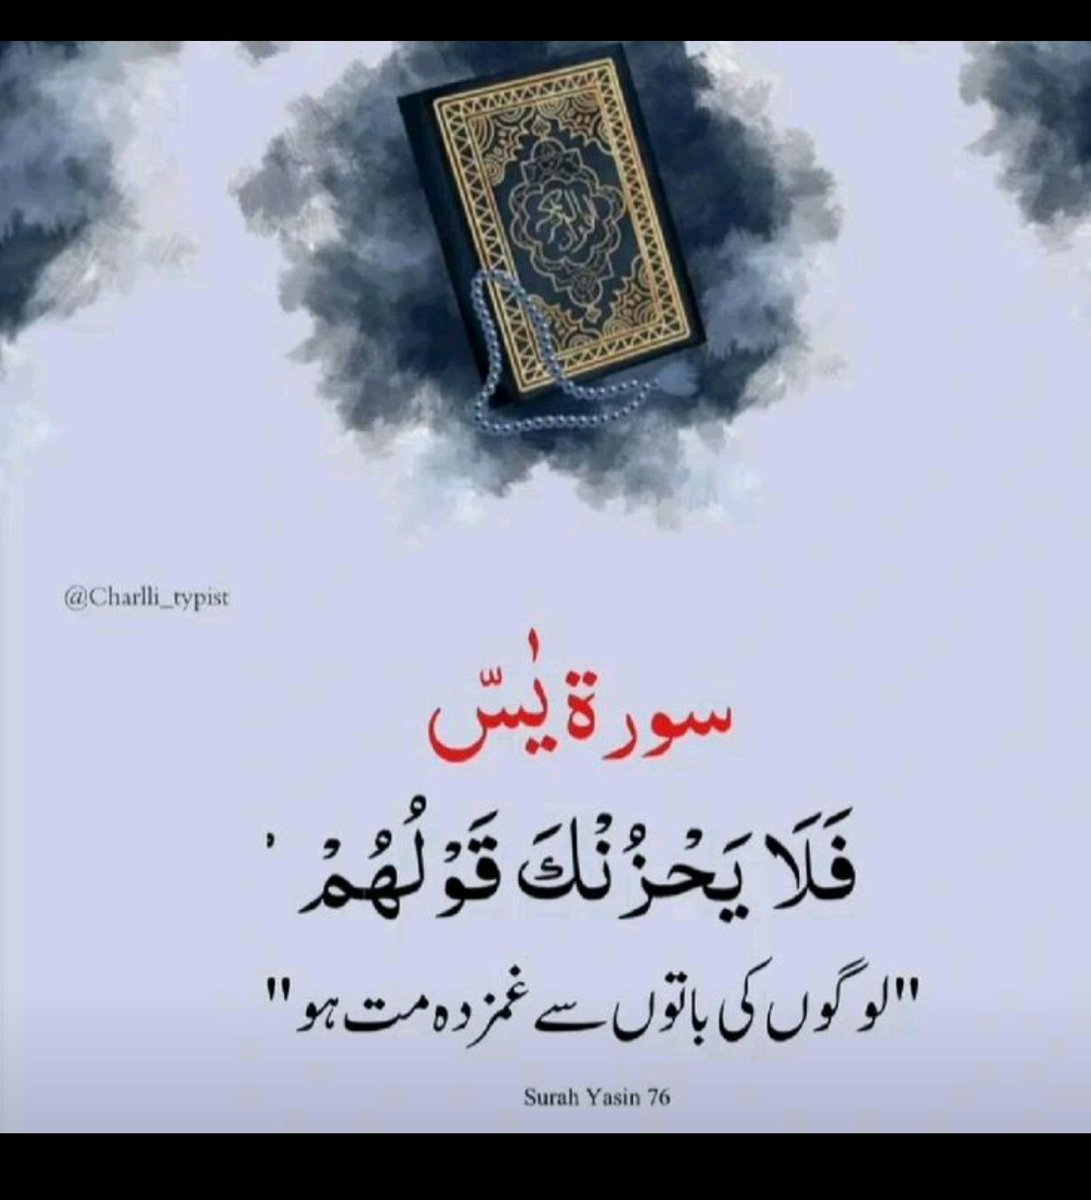 القرآن الكريم
@Charlli_typist
سورة يٰسّ
فَلَا يَحْزُنْكَ قَوْلُهُمْ ۘ
"لوگوں کی باتوں سے غمزدہ مت ہو"
Surah Yasin 76